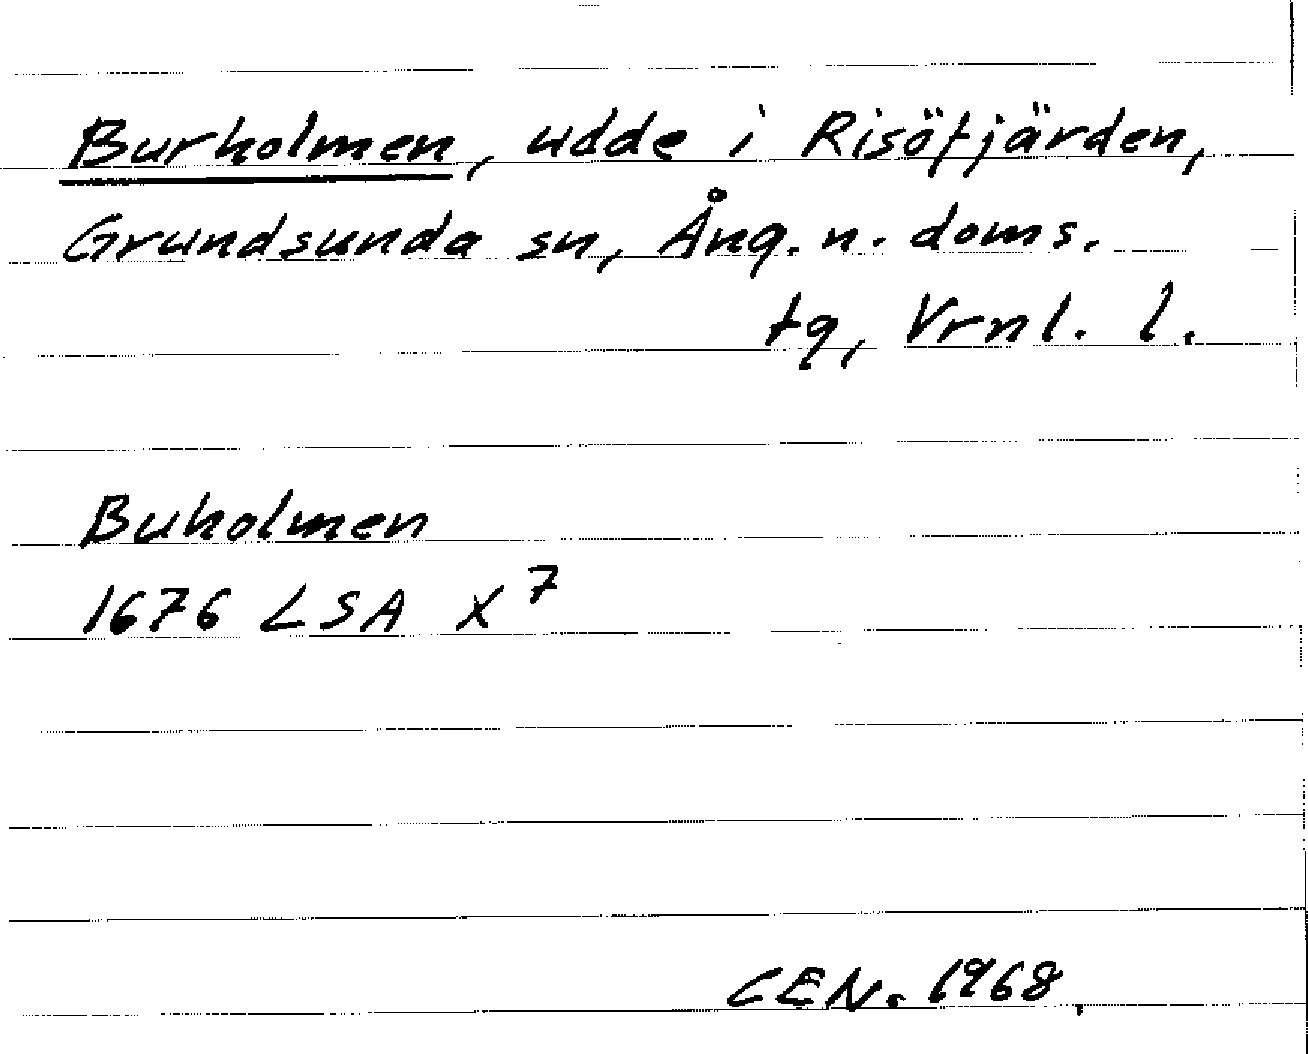 Burholmen, udde i Risöfjärden,
Grundsunda sn, Ång. n. doms.
tg, Vrnl. l.
Buholmen
1676 LSA X 7
CEN. 1968.